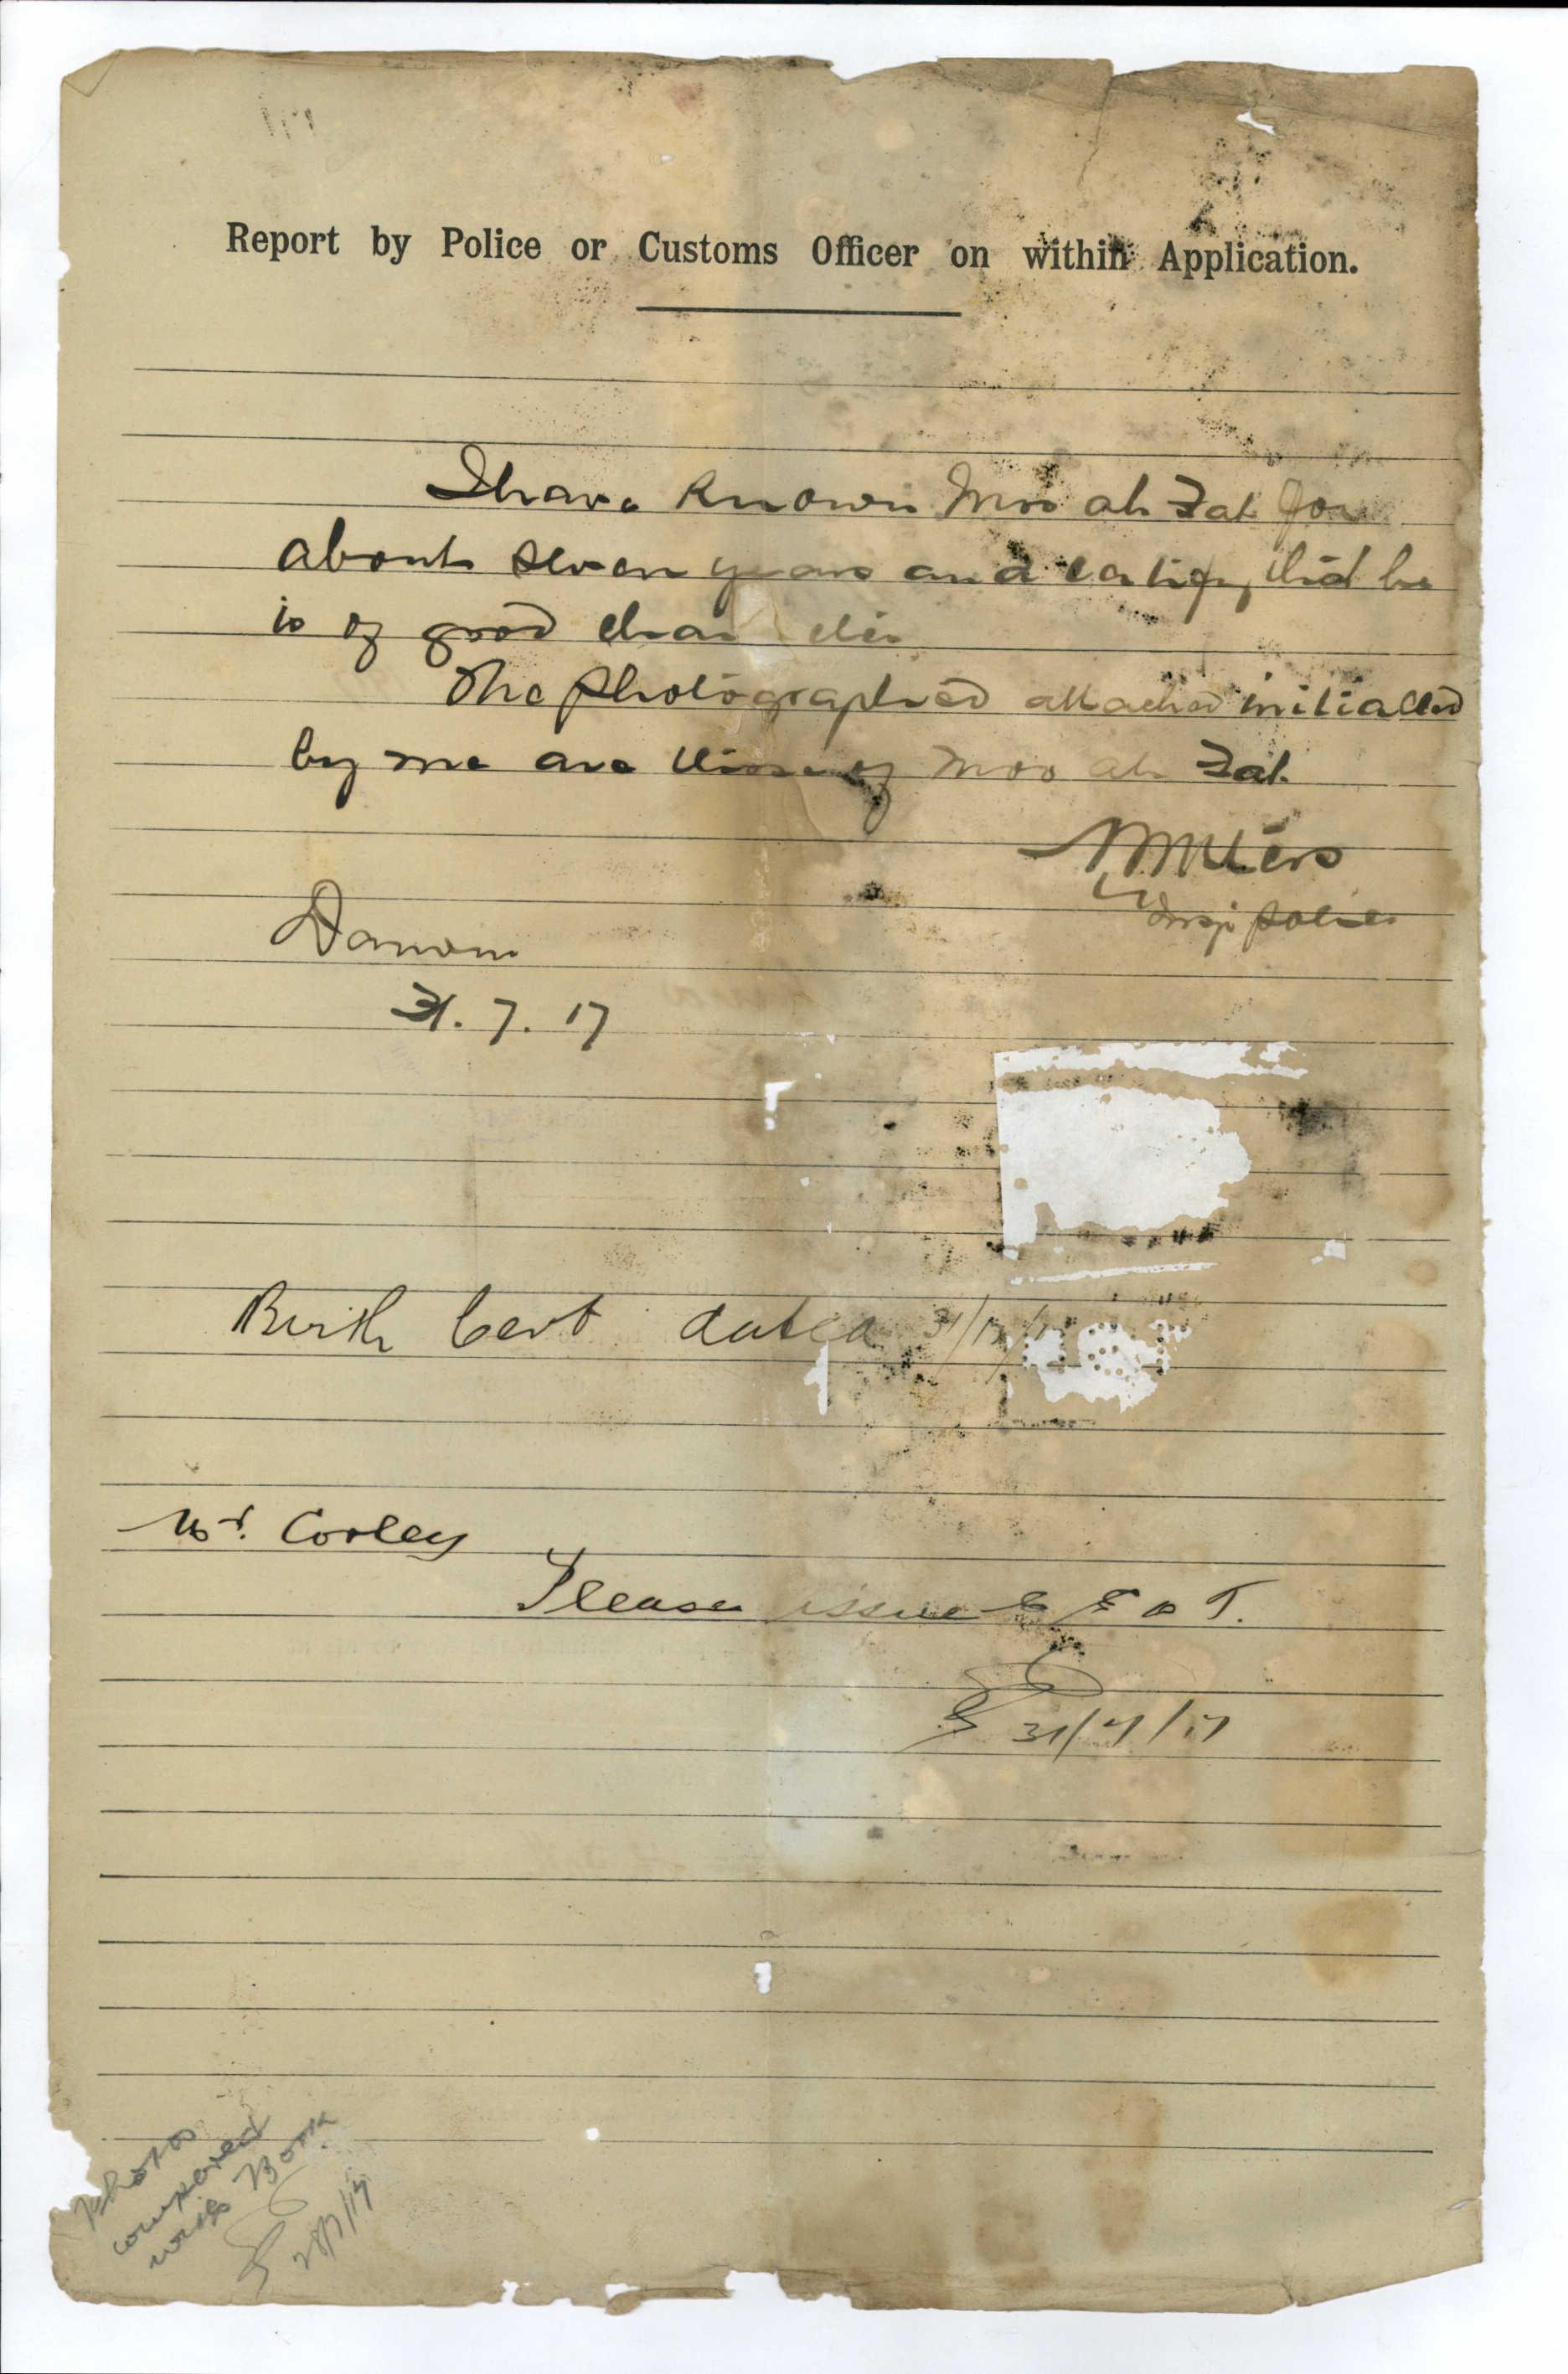 Report by Police or Customs Officer on within Application.
I have known Moo ah Fat for
about seven years and certify that he
is of good
The photographed attached initialled
by me are those of Moo ah Fat.
Insp Police
Darwin
31. 7. 17
Birth Cert dated 31/
Mr. Corley
Please issue C E D T.
31/7/17
Photos
compared
with Book